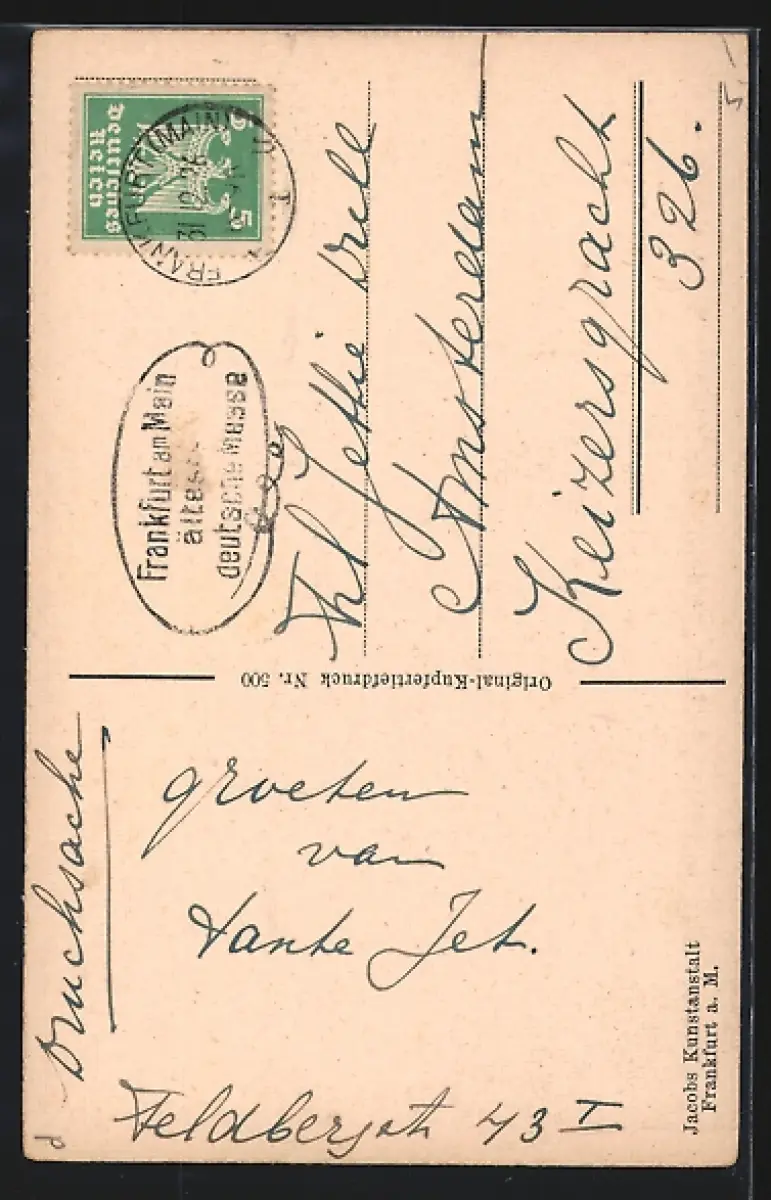 Deutsches
Reich
5
5
FRANKFURT (MAIN)
31 12 26
Frankfurt am Main
älteste
deutsche Messe
Frl Jettie
Amsterdam
Keizersgracht
326.
Original-Kupfertiefdruck Nr. 500
Drucksache
groeten
van
tante Jet.
Feldbergstr 43 I
Jacobs Kunstanstalt
Frankfurt a. M.